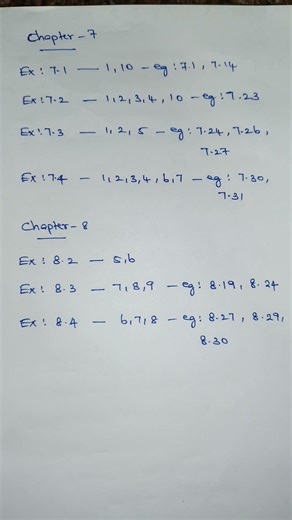 Chapter-7
Ex: 7.1 — 1, 10 - eg: 7.1, 7.14
Ex: 7.2 — 1, 2, 3, 4, 10 - eg: 7.23
Ex: 7.3 — 1, 2, 5 - eg: 7.24, 7.26,
7.27
Ex: 7.4 — 1, 2, 3, 4, 6, 7 - eg: 7.30,
7.31
Chapter-8
Ex: 8.2 — 5, 6
Ex: 8.3 — 7, 8, 9 - eg: 8.19, 8.24
Ex: 8.4 — 6, 7, 8 - eg: 8.27, 8.29,
8.30